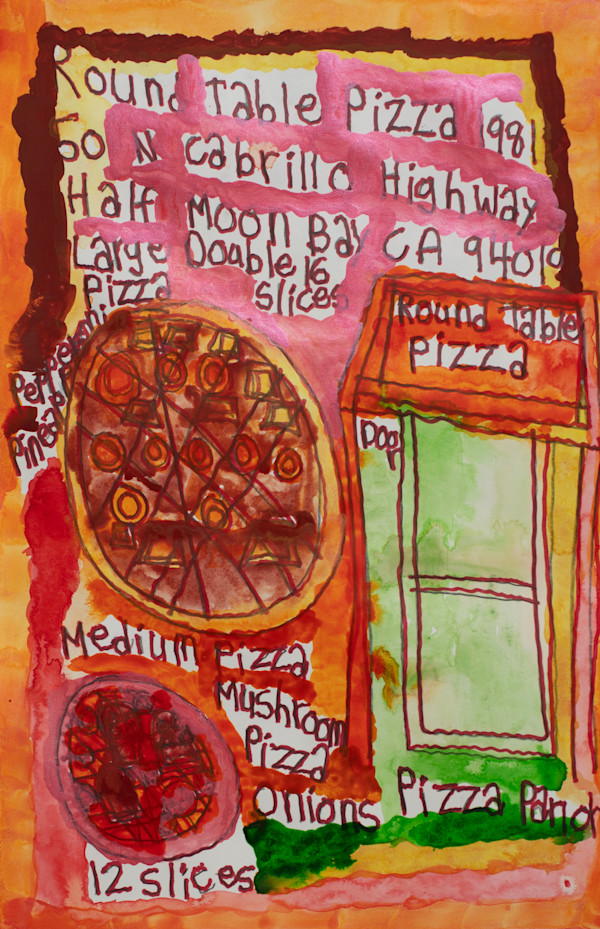 Round Table Pizza 981
50 N Cabrillo Highway
Half Moon Bay CA 94019
Large Double 16
Pizza slices
Pepperoni
Round Table
Pizza
Medium Pizza
Mushroom
Pizza
Onions
12 slices
Pizza